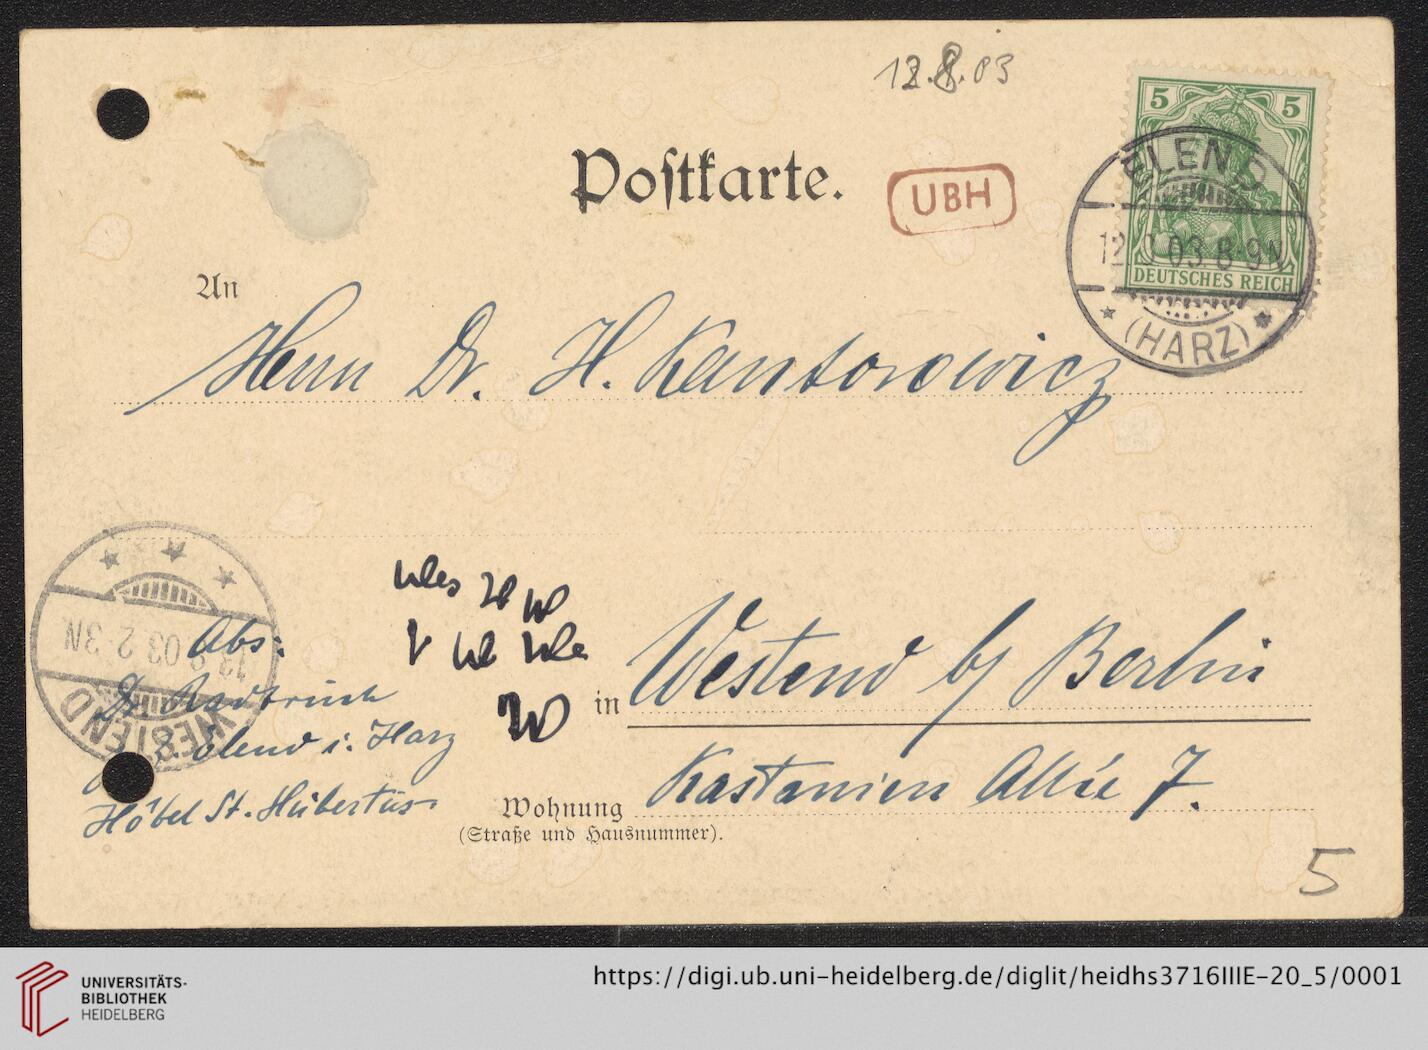 12.8.03
Postkarte.
UBH
5 5
DEUTSCHES REICH
ELEND
12. 03. 8-9N
(HARZ)
An
Herrn Dr. H. Kantorowicz
in Westend b/ Berlin
Wohnung Kastanien Allée 7.
(Straße und Hausnummer).
WESTEND
13. 03 2-3N
Abs:
Dr. Radbruch
Elend i. Harz
Hôtel St. Hubertus
5
UNIVERSITÄTS-
BIBLIOTHEK
HEIDELBERG
https://digi.ub.uni-heidelberg.de/diglit/heidhs3716IIIE-20_5/0001